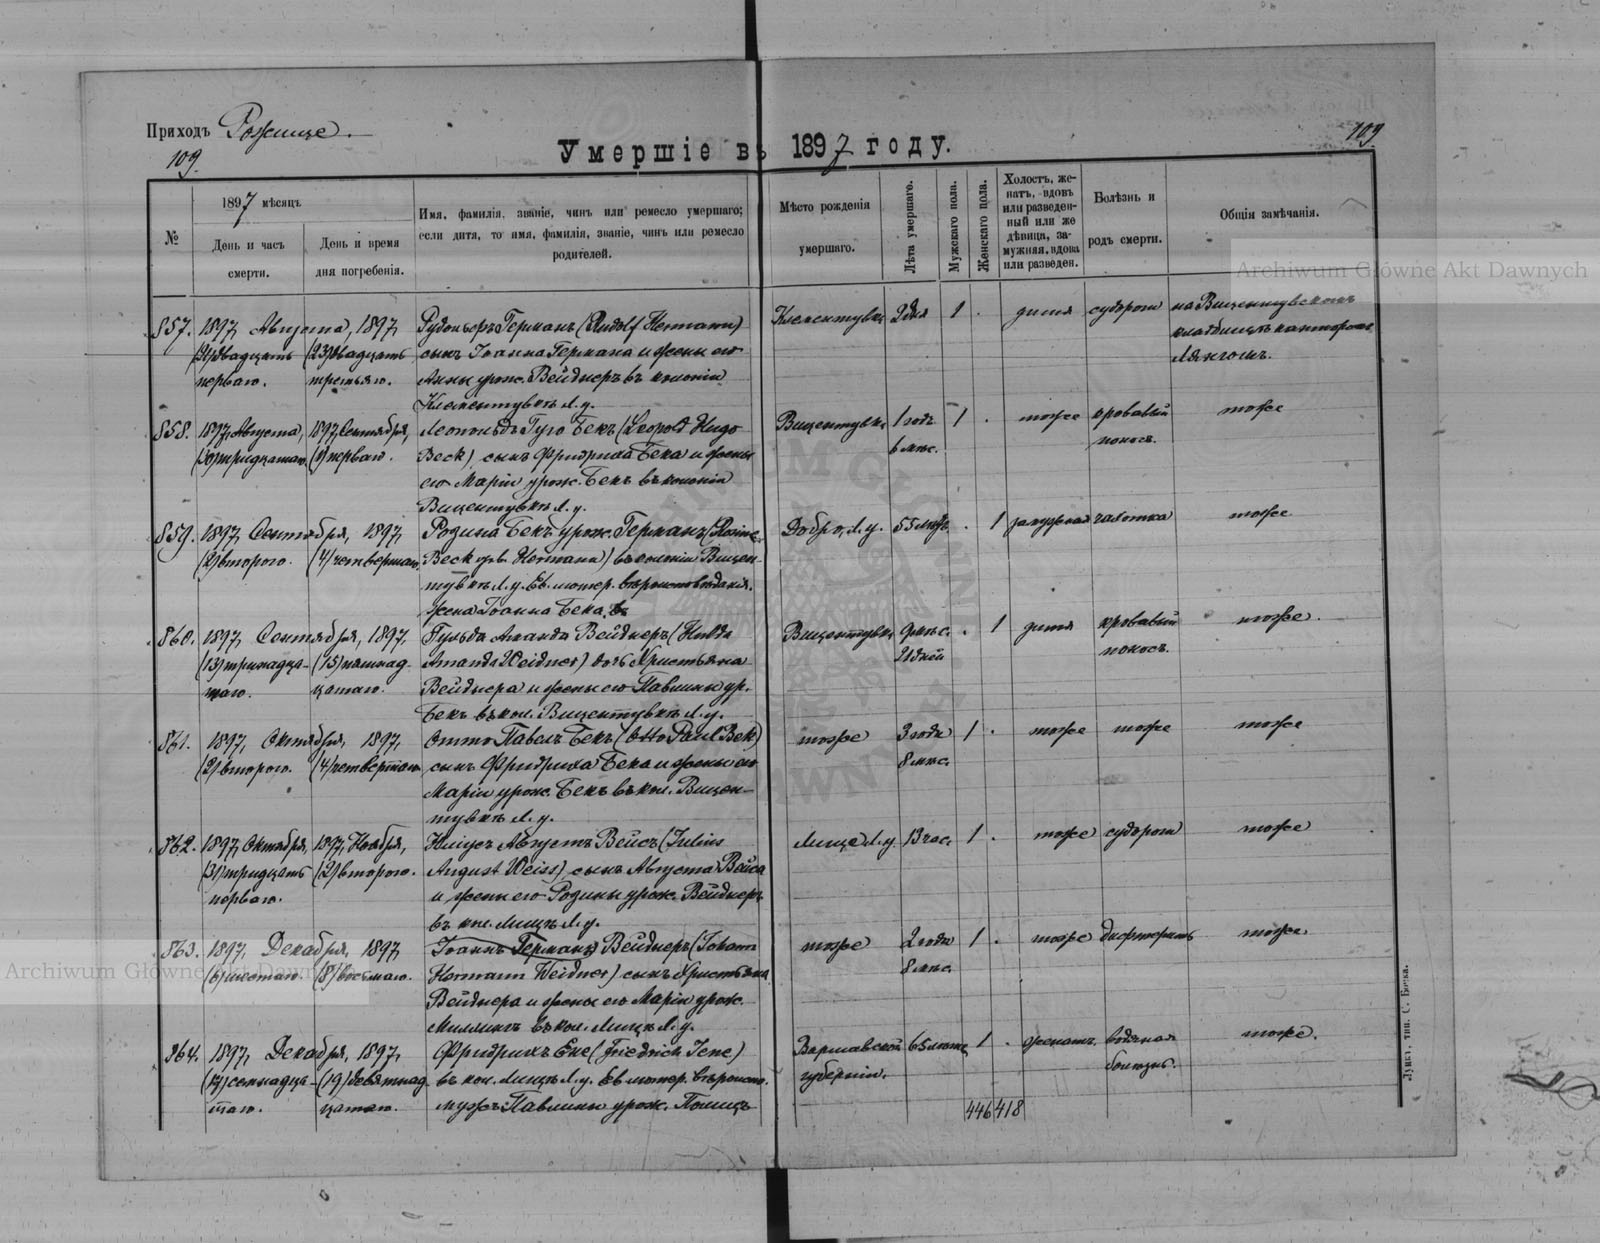 Приходъ Рожище.
109.
109.
Умершіе въ 1897 году.
№
1897 мѣсяцъ
День и часъ смерти.
День и время дня погребенія.
Имя, фамилія, званіе, чинъ или ремесло умершаго;
если дитя, то имя, фамилія, званіе, чинъ или ремесло
родителей.
Мѣсто рожденія
умершаго.
Лѣта умершаго.
Мужскаго пола.
Женскаго пола.
Холостъ, же-
натъ, вдовъ
или разведен-
ный или же
дѣвица, за-
мужняя, вдова
или разведен.
Болѣзнь и
родъ смерти.
Общія замѣчанія.
857. 1897, Августа, 1897, Рудольфъ Германъ (Rudolf Hermann) Клементувка 2 дня 1 . дитя судороги на Вицентувскомъ
(21) двадцать (23) двадцать сынъ Іоанна Германа и жены его кладбищѣ канторомъ
перваго. третьяго. Анны урож. Вейднеръ въ колоніи Лянгомъ.
Клементувкѣ Л. у.
858. 1897, Августа, 1897, Сентября, Леопольдъ Гуго Бекъ (Leopold Hugo Вицентувка 1 годъ 1 . тоже кровавый тоже
(30) тридцатаго. (1) перваго. Beck), сынъ Фридриха Бека и жены 6 мѣс. поносъ.
его Маріи урож. Бекъ въ колоніи
Вицентувкѣ Л. у.
859. 1897, Сентября, 1897, Розина Бекъ урож. Германъ (Rosine Добро, Л. у. 55 лѣтъ . 1 замужняя чахотка тоже
(2) второго. (4) четвертаго. Beck geb. Hermann) въ колоніи Вицен-
тувкѣ Л. у. Ев. лютер. вѣроисповѣданія.
жена Іоанна Бека.
860. 1897, Сентября, 1897, Гульда Аманда Вейднеръ (Hulda Вицентувка 9 мѣс. . 1 дитя кровавый тоже.
(13) тринадца- (15) пятнад- Amanda Weidner) дочь Христьяна 21 дней поносъ.
таго. цатаго. Вейднера и жены его Павлины ур.
Бекъ въ кол. Вицентувкѣ Л. у.
861. 1897, Октября, 1897, Отто Павелъ Бекъ (Otto Paul Bek) тоже 3 года 1 . тоже тоже тоже
(2) второго. (4) четвертаго. сынъ Фридриха Бека и жены его 8 мѣс.
Маріи урож. Бекъ въ кол. Вицен-
тувкѣ Л. у.
862. 1897, Октября, 1897, Ноября, Юліусъ Августъ Вейсъ (Julius Лище Л. у. 13 час. 1 . тоже судороги тоже
(31) тридцать (2) второго. August Weiss), сынъ Августа Вейса
перваго. и жены его Розины урож. Вейднеръ
въ кол. Лищѣ Л. у.
863. 1897, Декабря, 1897, Іоаннъ Германъ Вейднеръ (Johann тоже 2 года 1 . тоже дифтеритъ тоже
(6) шестаго. (8) восьмаго. Hermann Weidner) сынъ Христьяна 8 мѣс.
Вейднера и жены его Маріи урож.
въ кол. Лищѣ Л. у.
864. 1897, Декабря, 1897, Фридрихъ Ене (Friedrich Jene) Варшавской 65 лѣтъ 1 . женатъ. водяная тоже.
(17) семнадца- (19) девятнад- въ кол. Лищѣ Л. у. Ев. лютер. вѣроиспо. губерніи. болѣзнь.
таго. цатаго. мужъ Павлины урож.
446 418
Луцкъ, тип. С. Бонка.
Archiwum Główne Akt Dawnych
Archiwum Główne Akt Dawnych